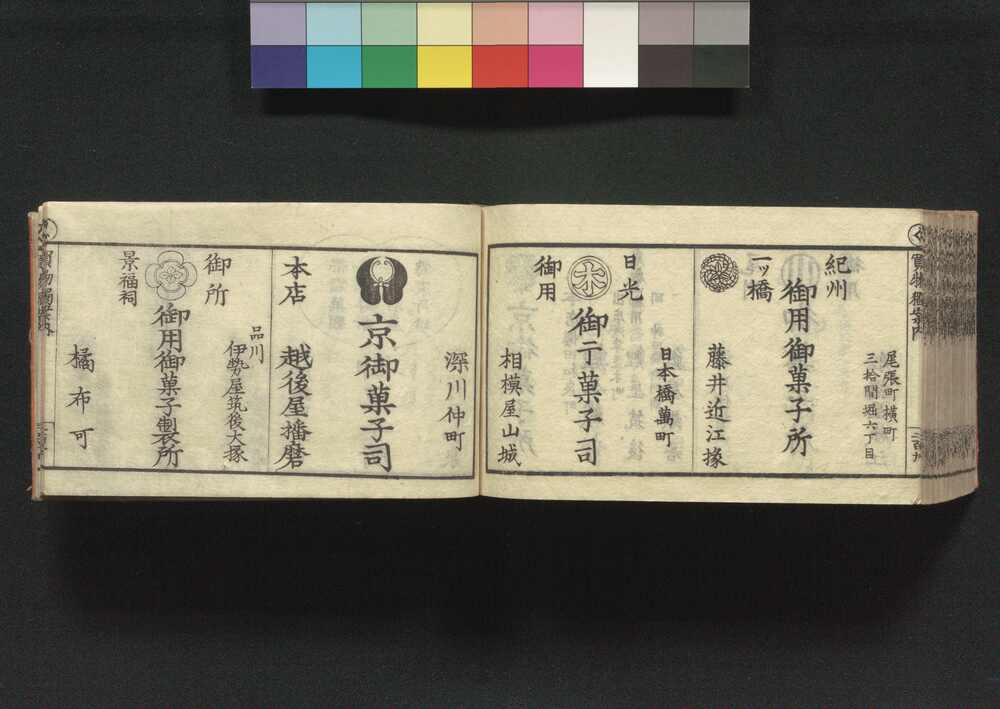 尾張町横町
三拾間堀六丁目
紀州
御用御菓子所
一ッ橋
藤井近江掾
日本橋萬町
日光
御干菓子司
御用
相模屋山城
深川仲町
京御菓子司
本店
越後屋播磨
品川
伊勢屋筑後大掾
御所
御用御菓子製所
景福祠
橘布可